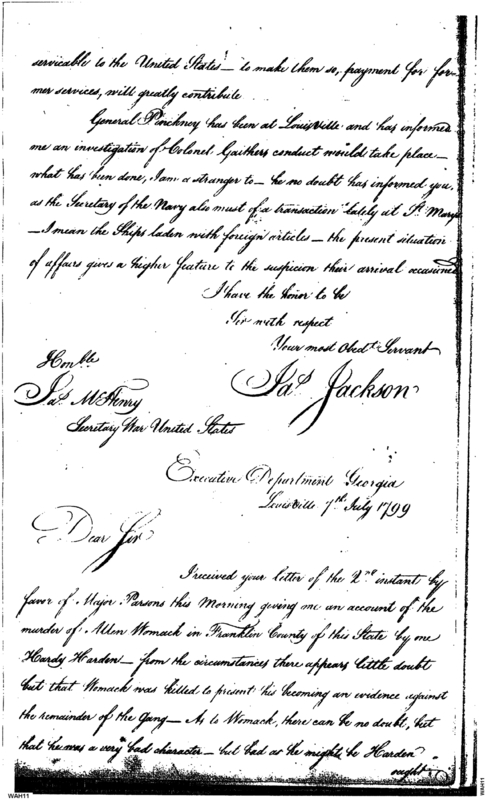 servicable to the United States — to make them so, payment for for-
mer services, will greatly contribute
General Pinckney has been at Louisville and has informed
me an investigation of Colonel Gaithers conduct would take place —
what has been done, I am a stranger to — he no doubt has informed you,
as the Secretary of the Navy also must of a transaction lately at St. Marys
— I mean the Ships laden with foreign articles — the present situation
of affairs gives a higher feature to the suspicion their arrival occasioned
I have the honor to be
Sir with respect
Your most Obedt Servant
Jas Jackson
Honble
Jas McHenry
Secretary War United States
Executive Department Georgia
Louisville 7th July 1799
Dear Sir
I received your letter of the 2nd instant by
favor of Major Parsons this Morning giving me an account of the
murder of Allen Womack in Franklin County of this State by one
Hardy Harden — from the circumstances there appears little doubt
but that Womack was killed to present his becoming an evidence against
the remainder of the Gang — As to Womack, there can be no doubt, but
that he was a very bad character — but bad as he might be Harden
ought
WAH11
WAH11